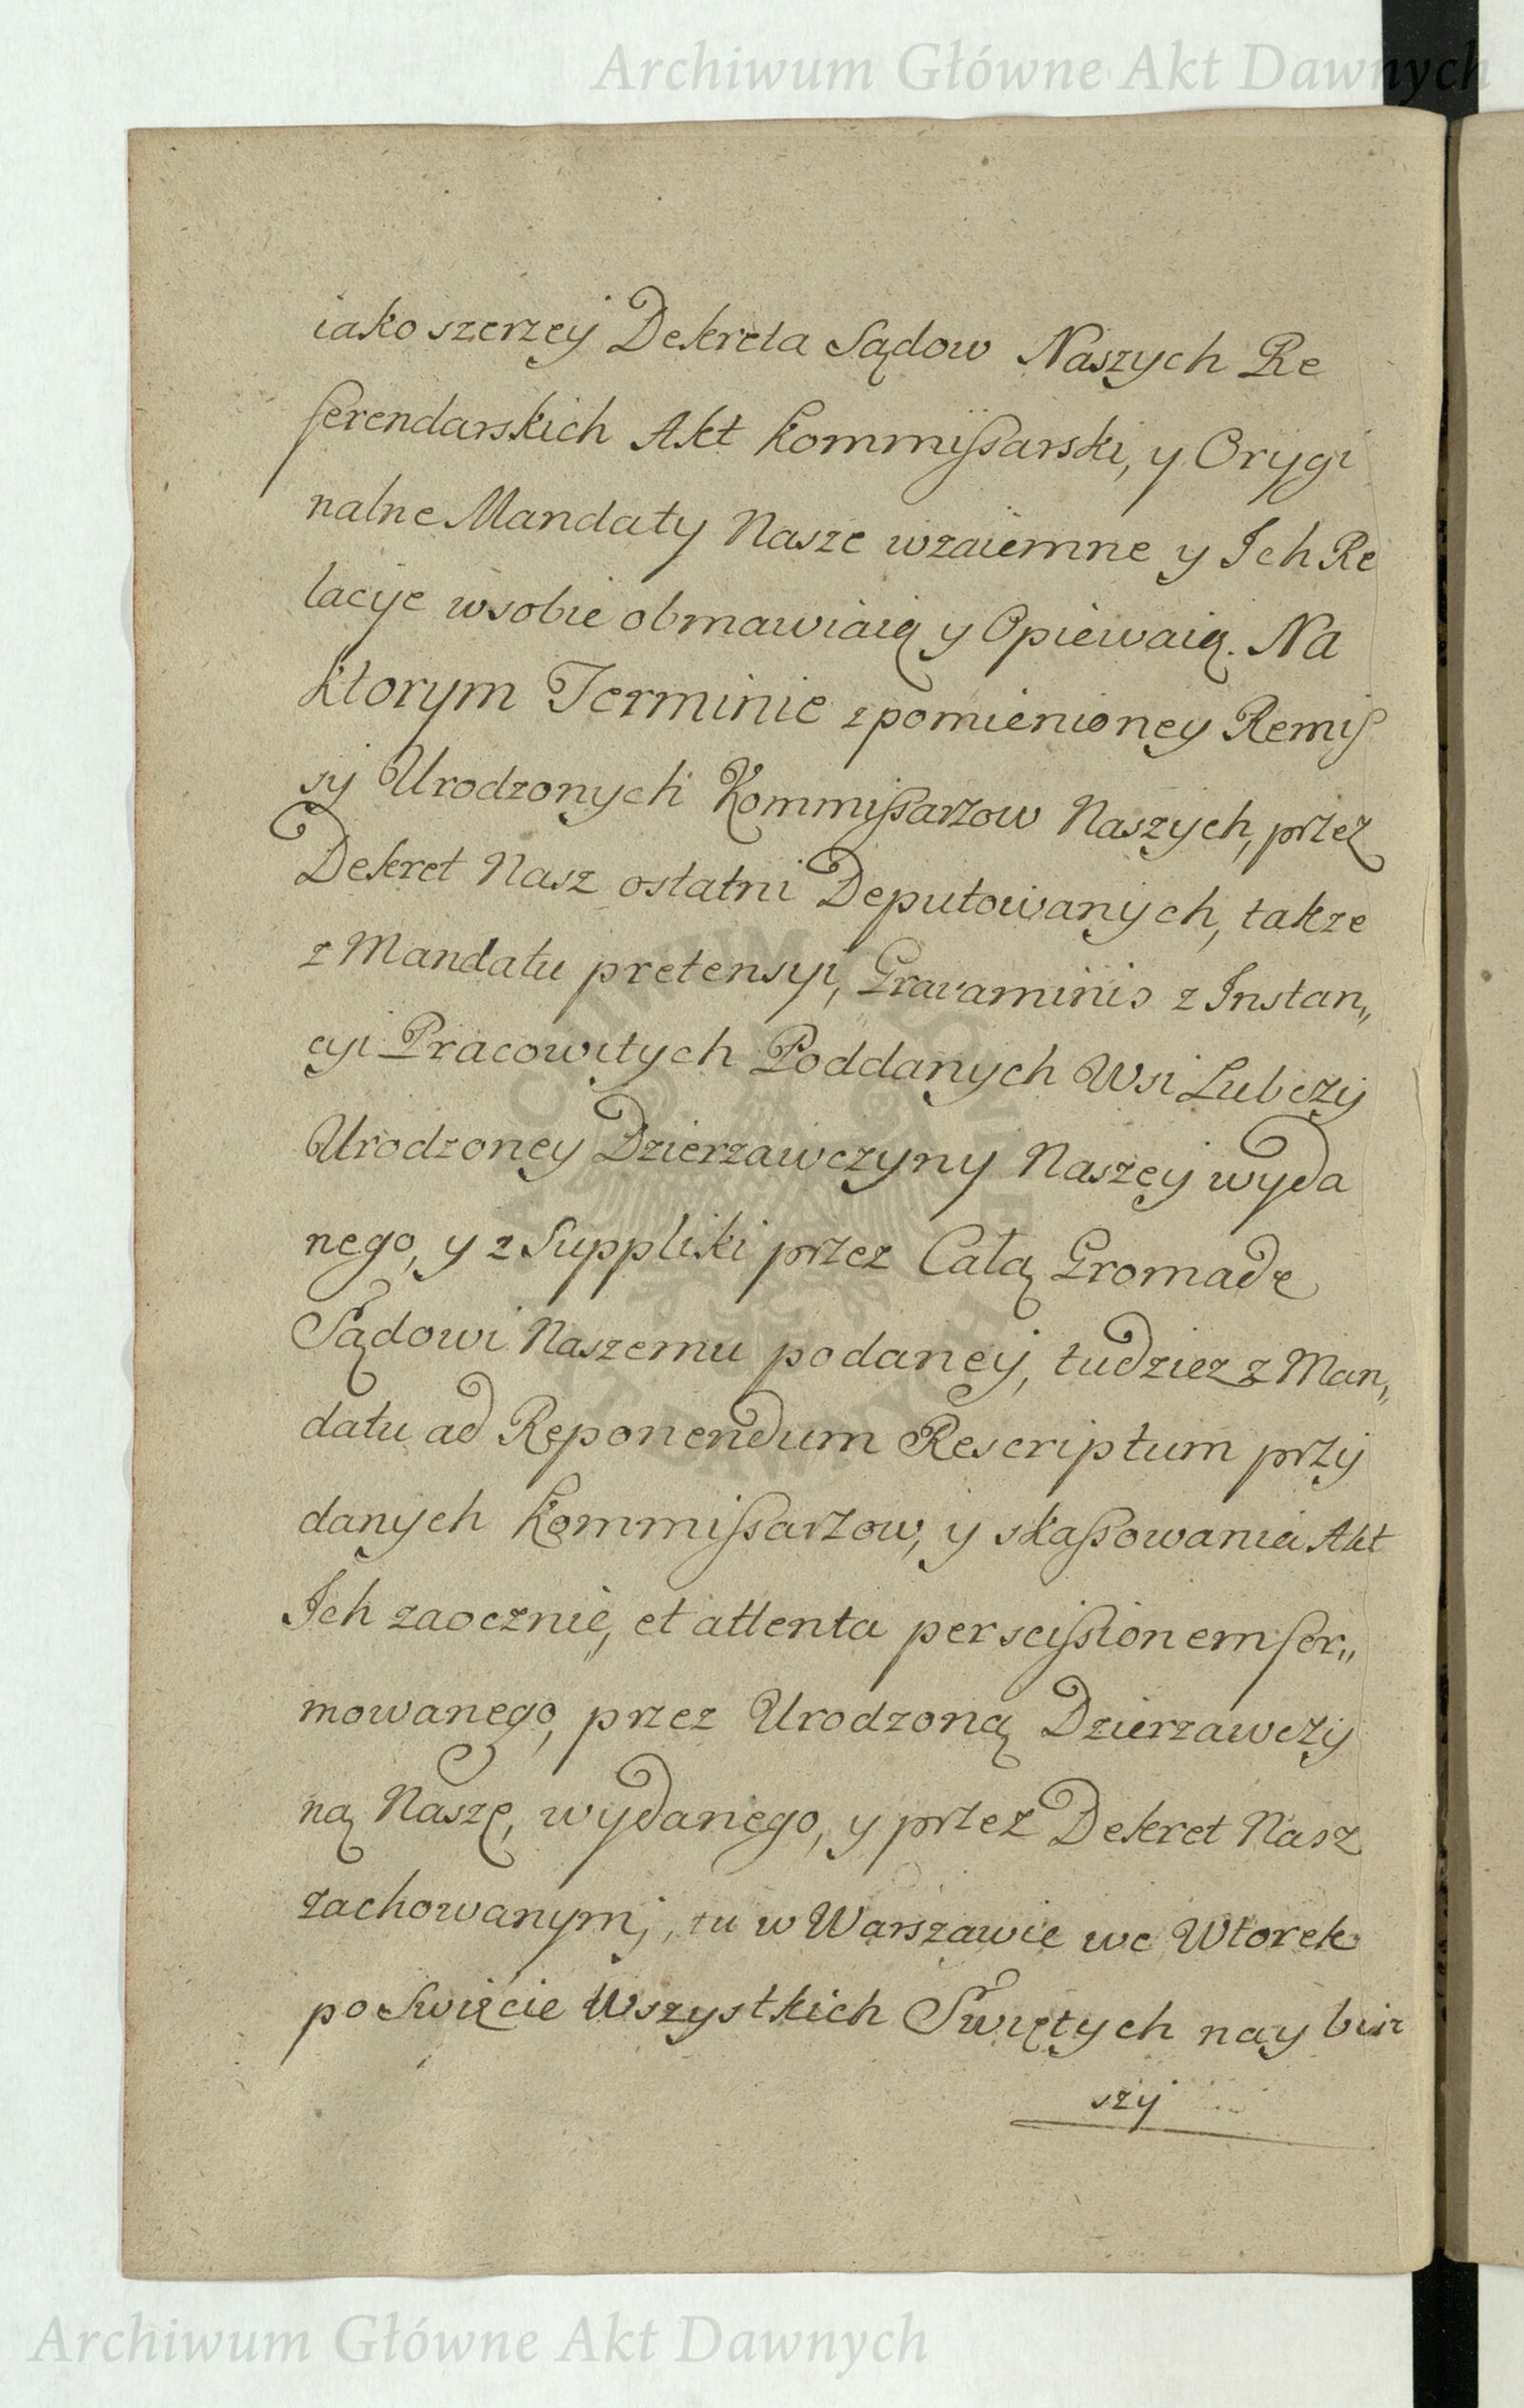 Archiwum Główne Akt Dawnych
iako szerzey Dekreta Sądow Naszych Re
ferendarskich Akt kommißarski, y Orygi
nalne Mandaty Nasze wzaiemne y Ich Re
lacye wsobie obmawiaią y Opiewaią. Na
ktorym Terminie z pomienioney Remiß
sy Urodzonych Kommißarzow Naszych, przez
Dekret Nasz ostatni Deputowanych, takze
z Mandatu pretensyi, Gravaminis z Instan„
cyi Pracowitych Poddanych Wsi Lubczy
Urodzoney Dzierzawczyny Naszey wyda
nego, y z Suppliki przez Całą Gromadę
Sądowi Naszemu podaney, tudziez z Man„
datu ad Reponendum Rescriptum przy
danych kommißarzow, y skaßowania Akt
Ich zaocznie, et attenta perscißionem for„
mowanego, przez Urodzoną Dzierzawczy
ną Naszę, wydanego, y przez Dekret Nasz
zachowanym, tu w Warszawie we Wtorek
po Swięcie Wszystkich Swiętych nay bliz
szy
ARCHIWUM GŁÓWNE AKT DAWNYCH
Archiwum Główne Akt Dawnych